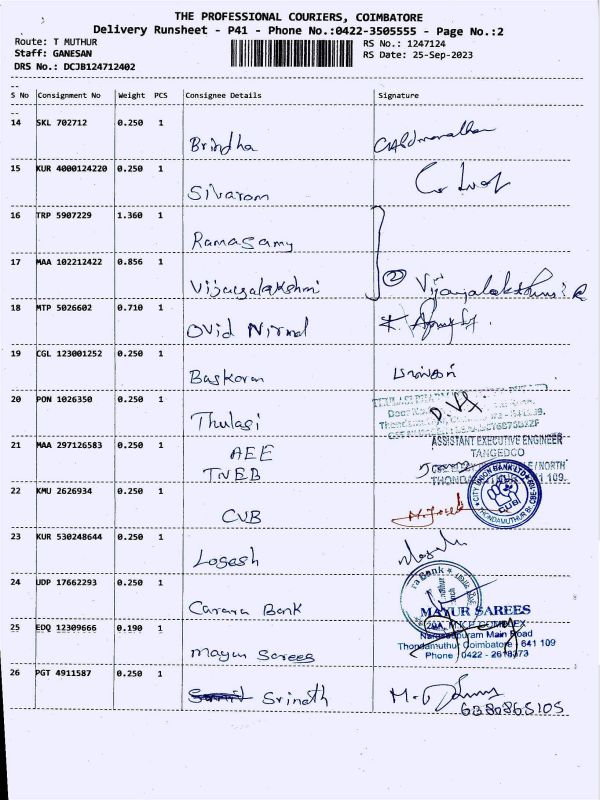 THE PROFESSIONAL COURIERS, COIMBATORE
Delivery Runsheet - P41 - Phone No.:0422-3505555 - Page No.:2
Route: T MUTHUR RS No.: 1247124
Staff: GANESAN RS Date: 25-Sep-2023
DRS No.: DCJB124712402
S No Consignment No Weight PCS Consignee Details Signature
14 SKL 702712 0.250 1
Brindha
15 KUR 4000124220 0.250 1
Sivaram
16 TRP 5907229 1.360 1
Ramasamy
17 MAA 102212422 0.856 1
Vijayalakshmi ② Vijayalakshmi R
18 MTP 5026602 0.710 1
Ovid Nirmal
19 CGL 123001252 0.250 1
Baskoran
20 PON 1026350 0.250 1
Thulasi
21 MAA 297126583 0.250 1 ASSISTANT EXECUTIVE ENGINEER
AEE TANGEDCO
TNEB NORTH
22 KMU 2626934 0.250 1 CITY UNION BANK LTD
CUB CUB
23 KUR 530248644 0.250 1
Logesh
24 UDP 17662293 0.250 1
Canara Bank MAYUR SAREES
25 EDQ 12309666 0.190 1 Main Road
Mayur Sarees Thondamuthur Coimbatore - 641 109
Phone : 0422 - 2618373
26 PGT 4911587 0.250 1
Srinath
6380865105